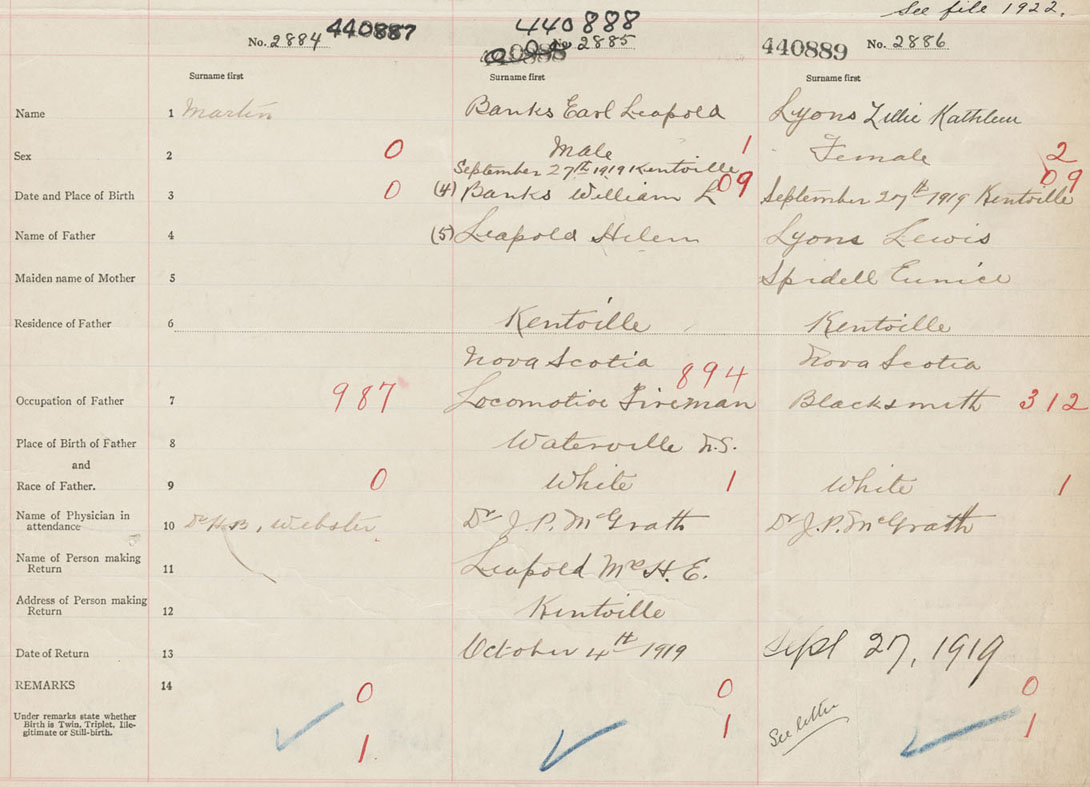 See file 1922.
No. 2884 440887
440888
No 2885
440889 No. 2886
Surname first Surname first Surname first
Name 1 Martin Banks Earl Leapold Lyons Lillie Kathleen
Sex 2 0 Male 1 Female 2
September 27th 1919 Kentville 09 09
Date and Place of Birth 3 0 (4) Banks William L September 27th 1919 Kentville
Name of Father 4 (5) Leapold Helen Lyons Lewis
Maiden name of Mother 5 Spidell Eunice
Residence of Father 6 Kentville Kentville
Nova Scotia Nova Scotia
894
Occupation of Father 7 987 Locomotive Fireman Blacksmith 312
Place of Birth of Father 8 Waterville N.S.
and
Race of Father. 9 0 White 1 White 1
Name of Physician in
attendance 10 Dr H.B. Webster Dr J.P. McGrath Dr J.P. McGrath
Name of Person making
Return 11 Leapold Mrs H.E.
Address of Person making
Return 12 Kentville
Date of Return 13 October 4th 1919 Sept 27, 1919
REMARKS 14 0 0 0
Under remarks state whether
Birth is Twin, Triplet, Ille-
gitimate or Still-birth.
1 1 See letter 1